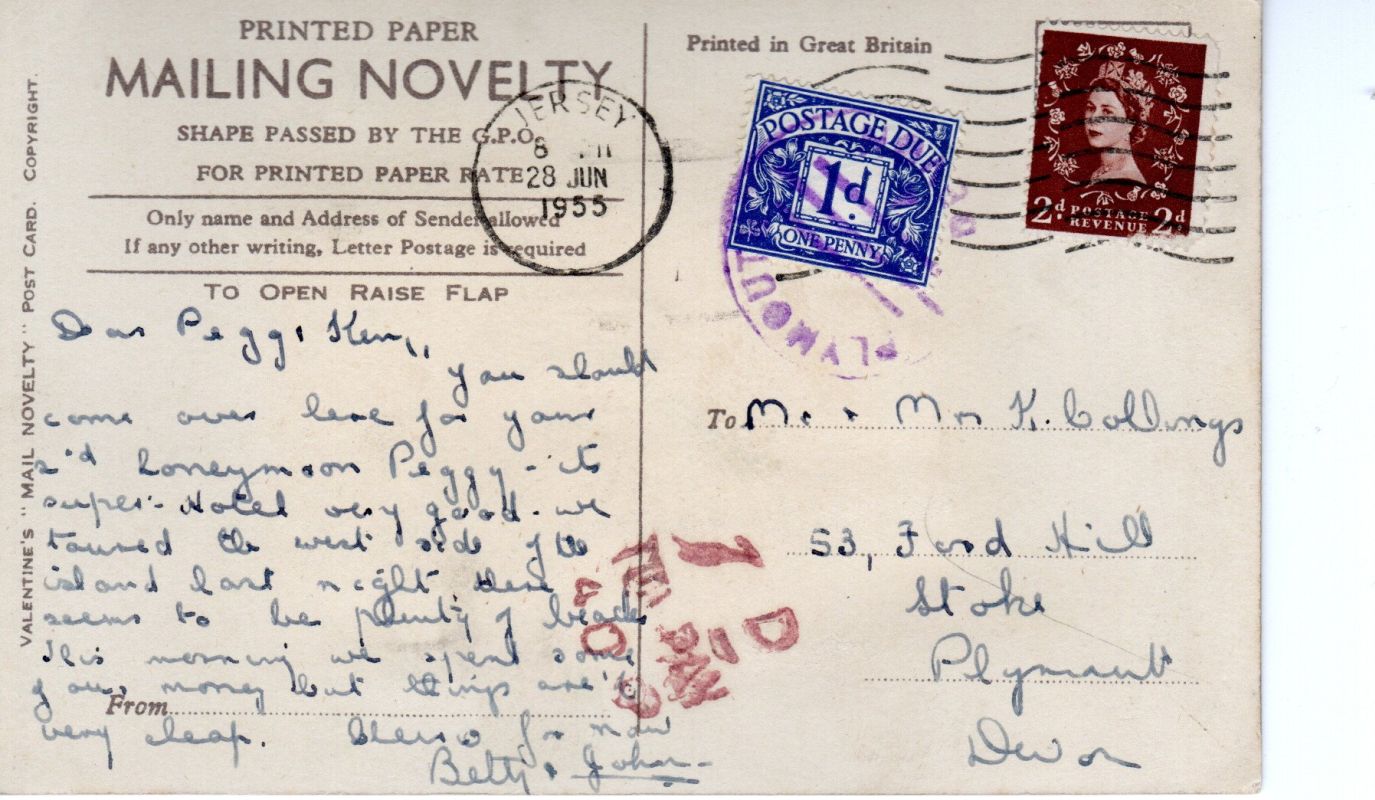 PRINTED PAPER
MAILING NOVELTY
SHAPE PASSED BY THE G.P.O.
FOR PRINTED PAPER RATE
Only name and Address of Sender allowed
If any other writing, Letter Postage is required
TO OPEN RAISE FLAP
VALENTINE'S "MAIL NOVELTY" POST CARD. COPYRIGHT.
JERSEY
8
28 JUN
1955
Dear Peggy Ken,,
you should
come over here for your
2'd honeymoon Peggy - its
super - Hotel very good - we
toured the west side of the
island last night. There
seems to be plenty of
This morning we spent some
of our money but things are't
From
very cheap. Cheerio for now
Betty & John -
Printed in Great Britain
POSTAGE DUE
1d.
ONE PENNY
PLYMOUT
2d. POSTAGE 2d.
REVENUE
To Mr. & Mrs K. Collings
53, Ford Hill
Stoke
Plymouth
Devon
1 D